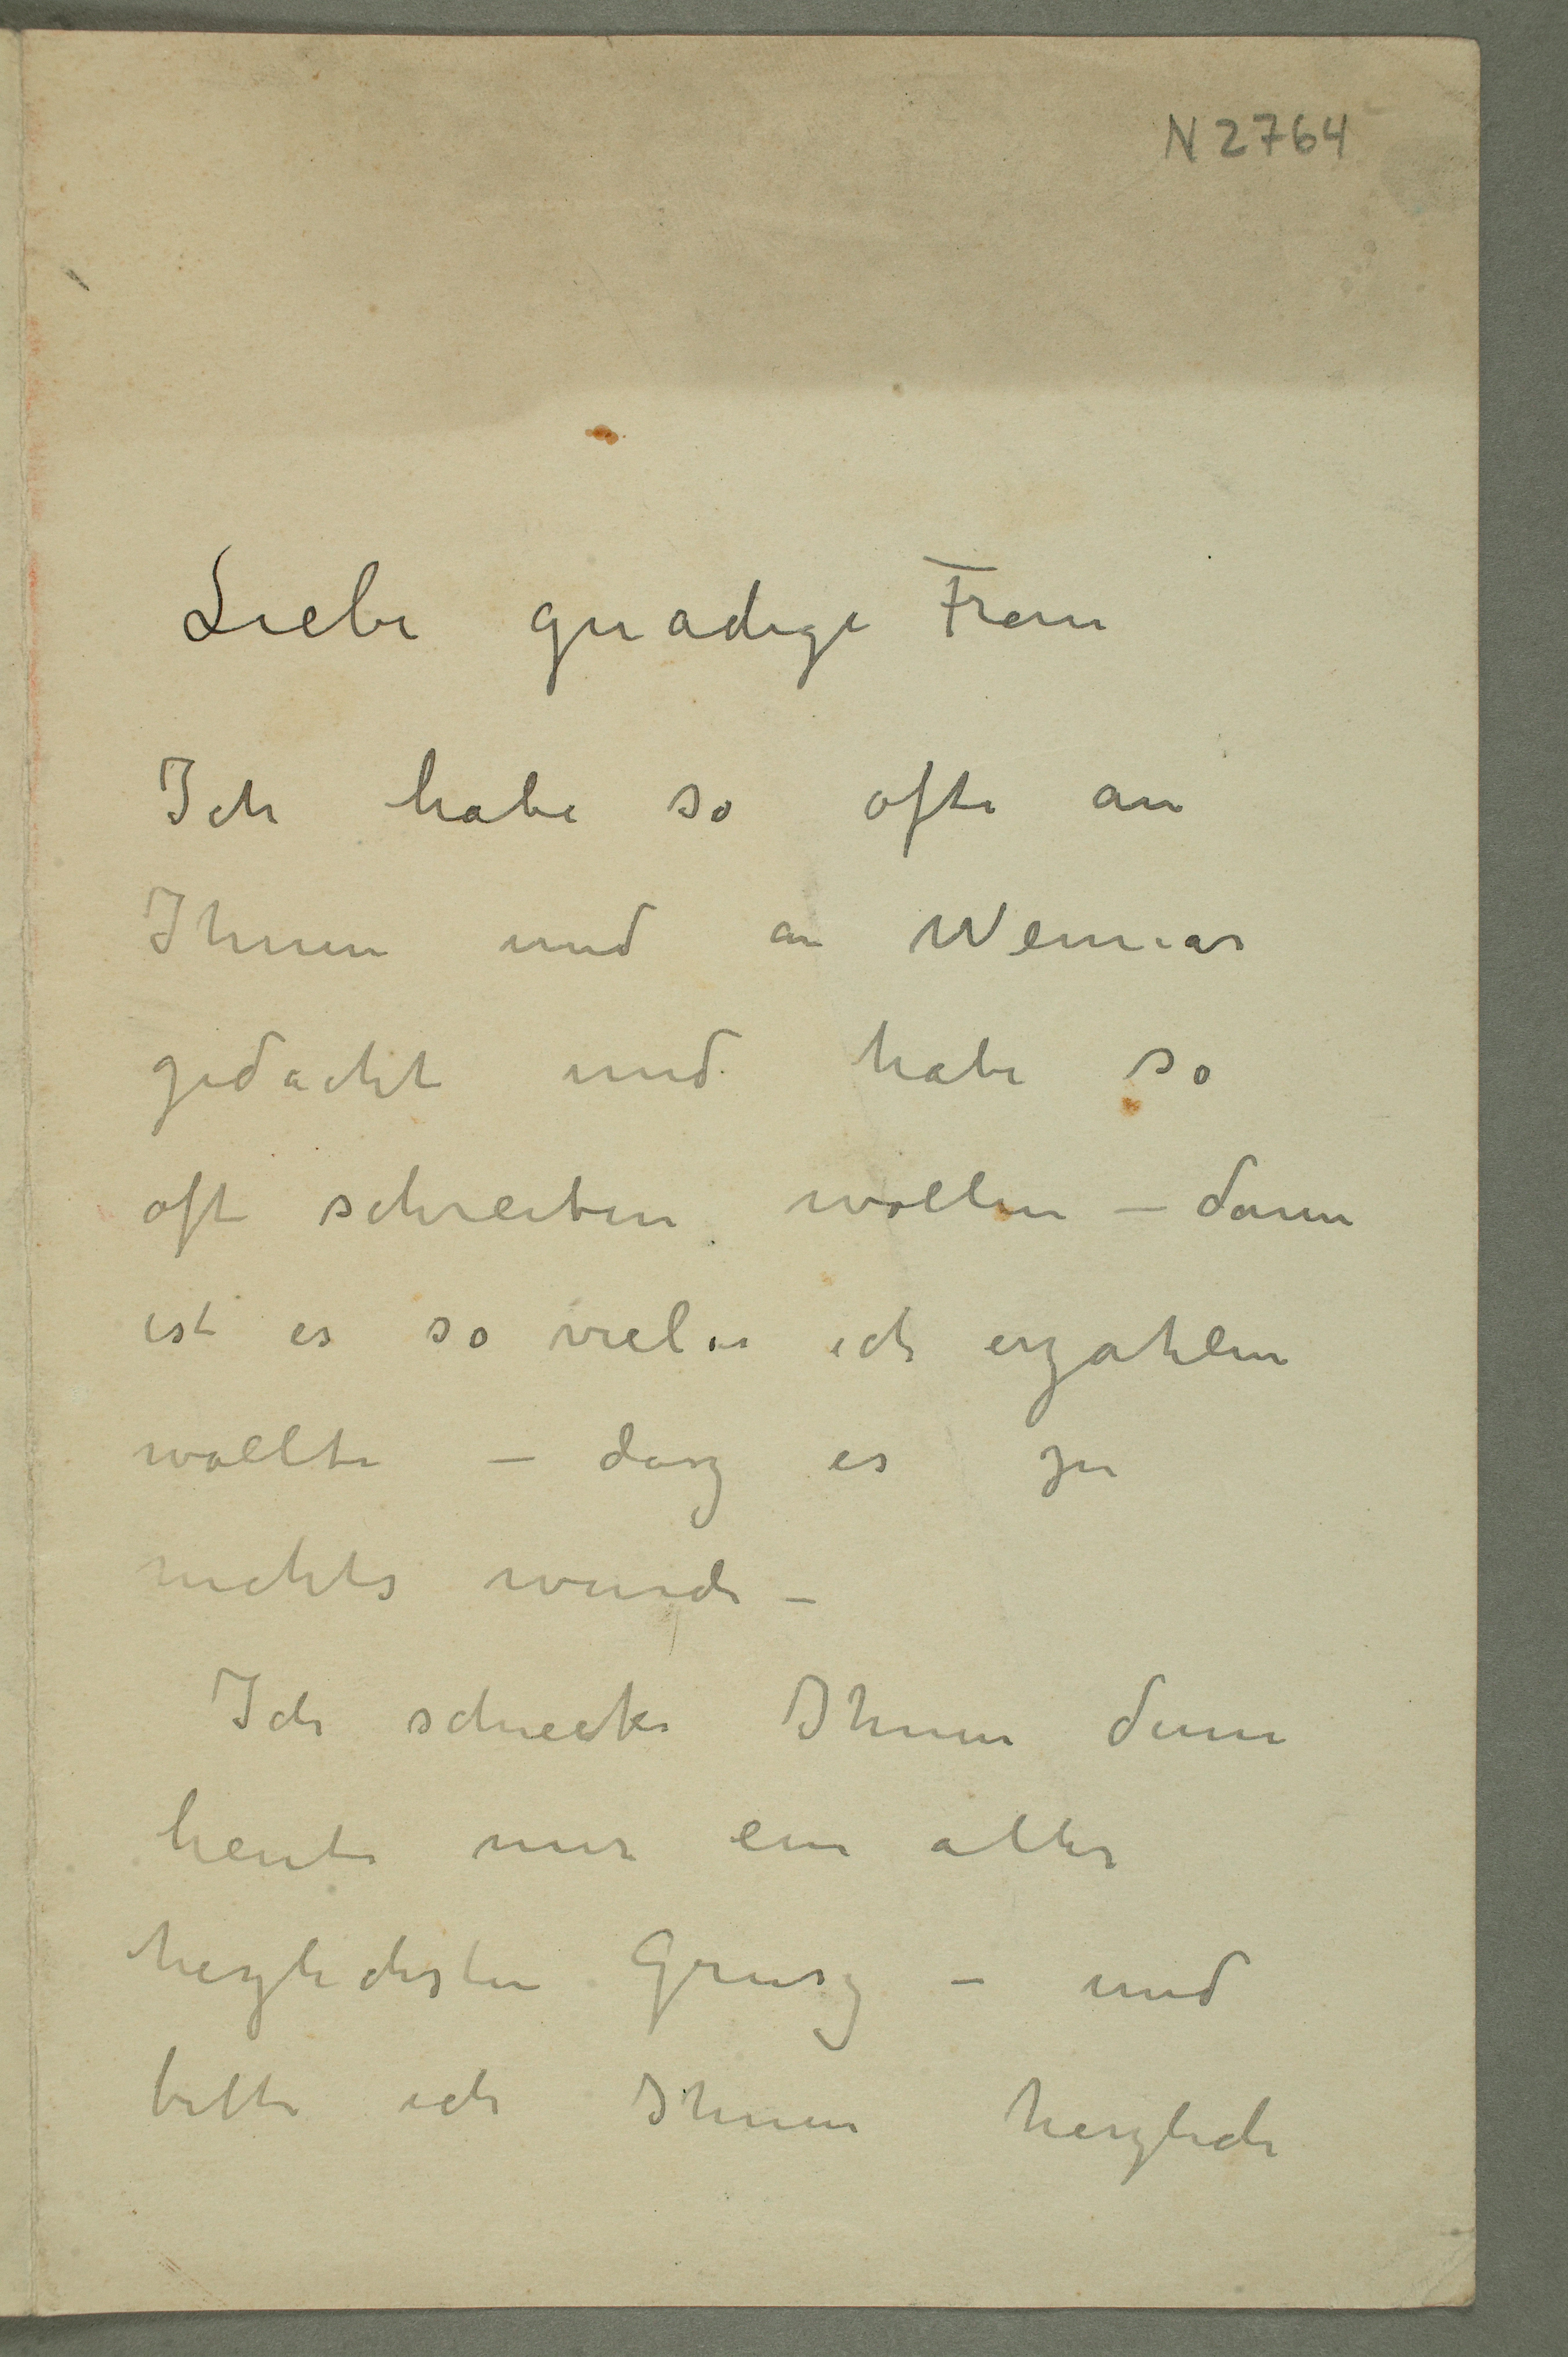 N 2764
Liebe gnadige Frau
Ich habe so ofte an
Ihnen und an Weimar
gedacht und habe so
oft schreiben wollen – dann
ist es so vieles ich erzahlen
wollte – dasz es zu
nichts wurde –
Ich schicke Ihnen denn
heute nur ein aller
herzlichsten Grusz – und
bitte ich Ihnen herzlich